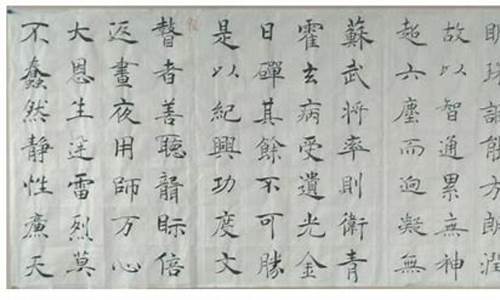 眀珠詎能方朗潤
故以智通累無神
超六塵而迥凝無
蘇武將率則衛青
霍玄病受遺光金
日磾其餘不可勝
是以紀興功度文
瞽者善聽聾眎倍
返晝夜用師万心
大恩生迅雷烈莫
不蠢然靜性廉天